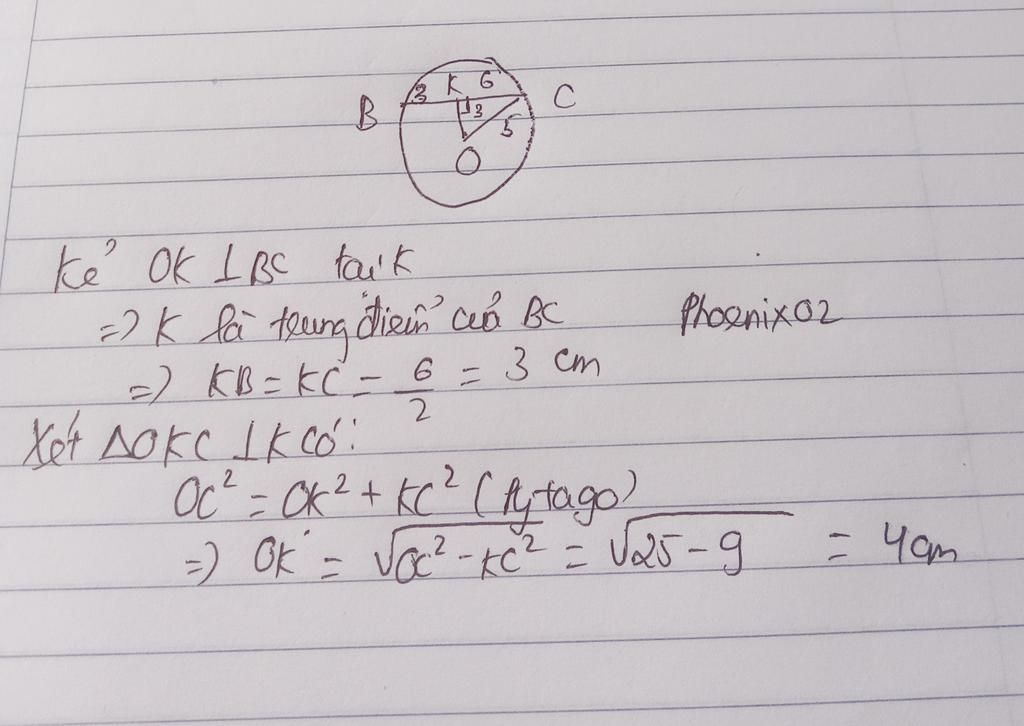 3 K 6
B 3 C
5
O
Kẻ OK ⊥ BC tại K
=> K là trung điểm của BC
Phoenix02
=> KB = KC = 6/2 = 3 cm
Xét ΔOKC ⊥ K có:
OC² = OK² + KC² (Pytago)
=> OK = √OC² - KC² = √25 - 9 = 4cm